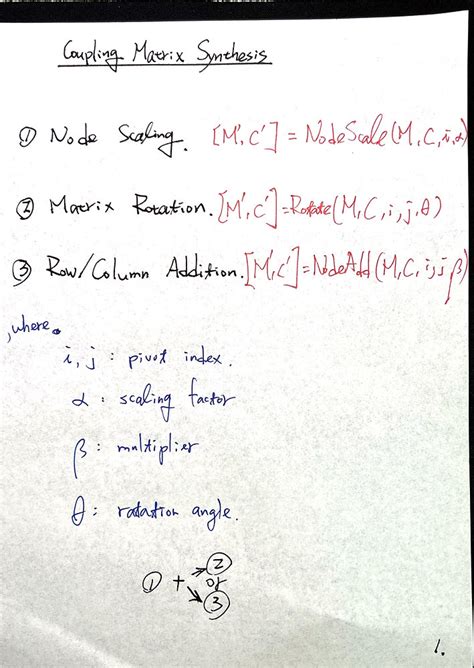 Coupling Matrix Synthesis
① Node Scaling. [M',C'] = NodeScale(M,C,i,α)
② Matrix Rotation. [M',C']=Rotate(M,C,i,j,θ)
③ Row/Column Addition. [M',C']=NodeAdd(M,C,i,j,β)
,where.
i, j : pivot index.
α : scaling factor
β : multiplier
θ : rotation angle.
① + ② or ③
1.